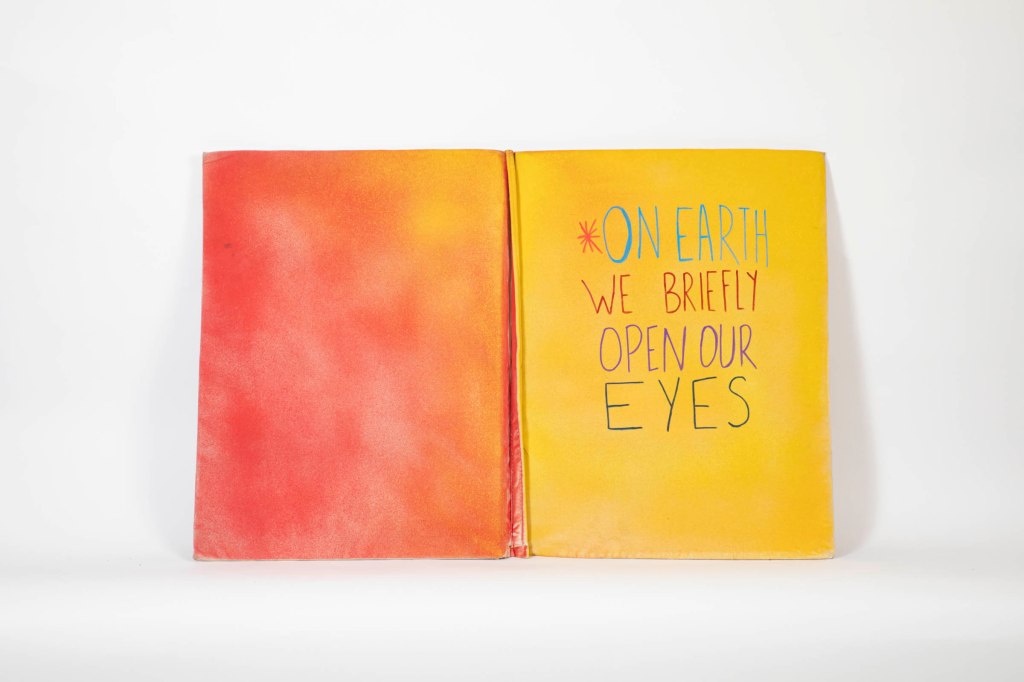 *ON EARTH
WE BRIEFLY
OPEN OUR
EYES